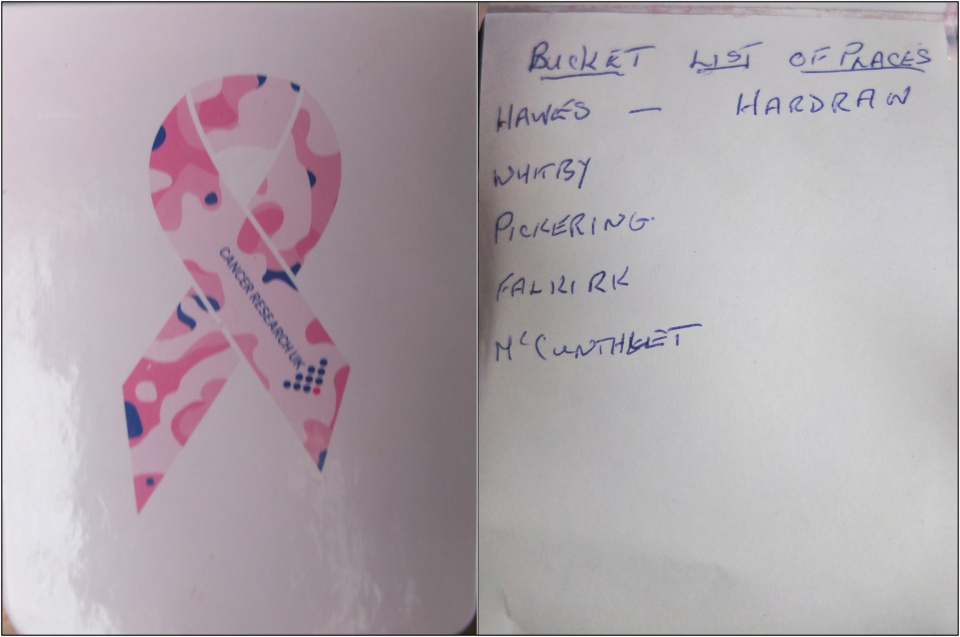 CANCER RESEARCH UK
BUCKET LIST OF PLACES
HAWES — HARDRAW
WHITBY
PICKERING
FALKIRK